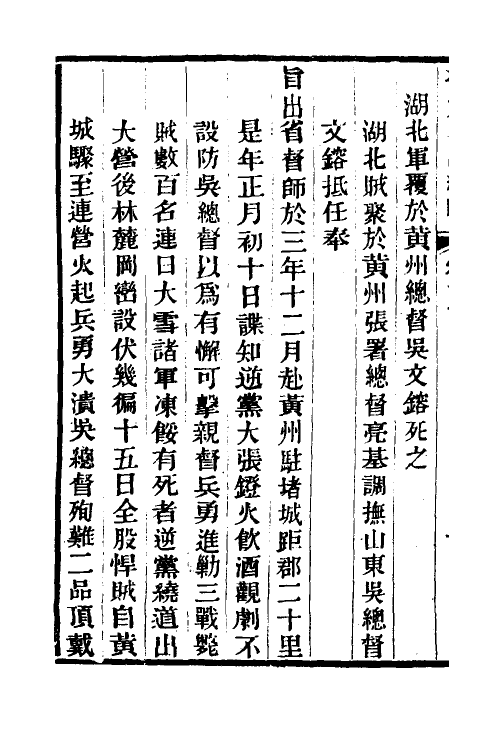 湖北軍覆於黃州總督吳文鎔死之
湖北賊聚於黃州張署總督亮基調撫山東吳總督
文鎔抵任奉
旨出省督師於三年十二月赴黃州駐堵城距郡二十里
是年正月初十日諜知逆黨大張鐙火飲酒觀劇不
設防吳總督以爲有懈可擊親督兵勇進勦三戰斃
賊數百名連日大雪諸軍凍餒有死者逆黨繞道出
大營後林麓岡密設伏幾徧十五日全股悍賊自黃
城驟至連營火起兵勇大潰吳總督殉難二品頂戴